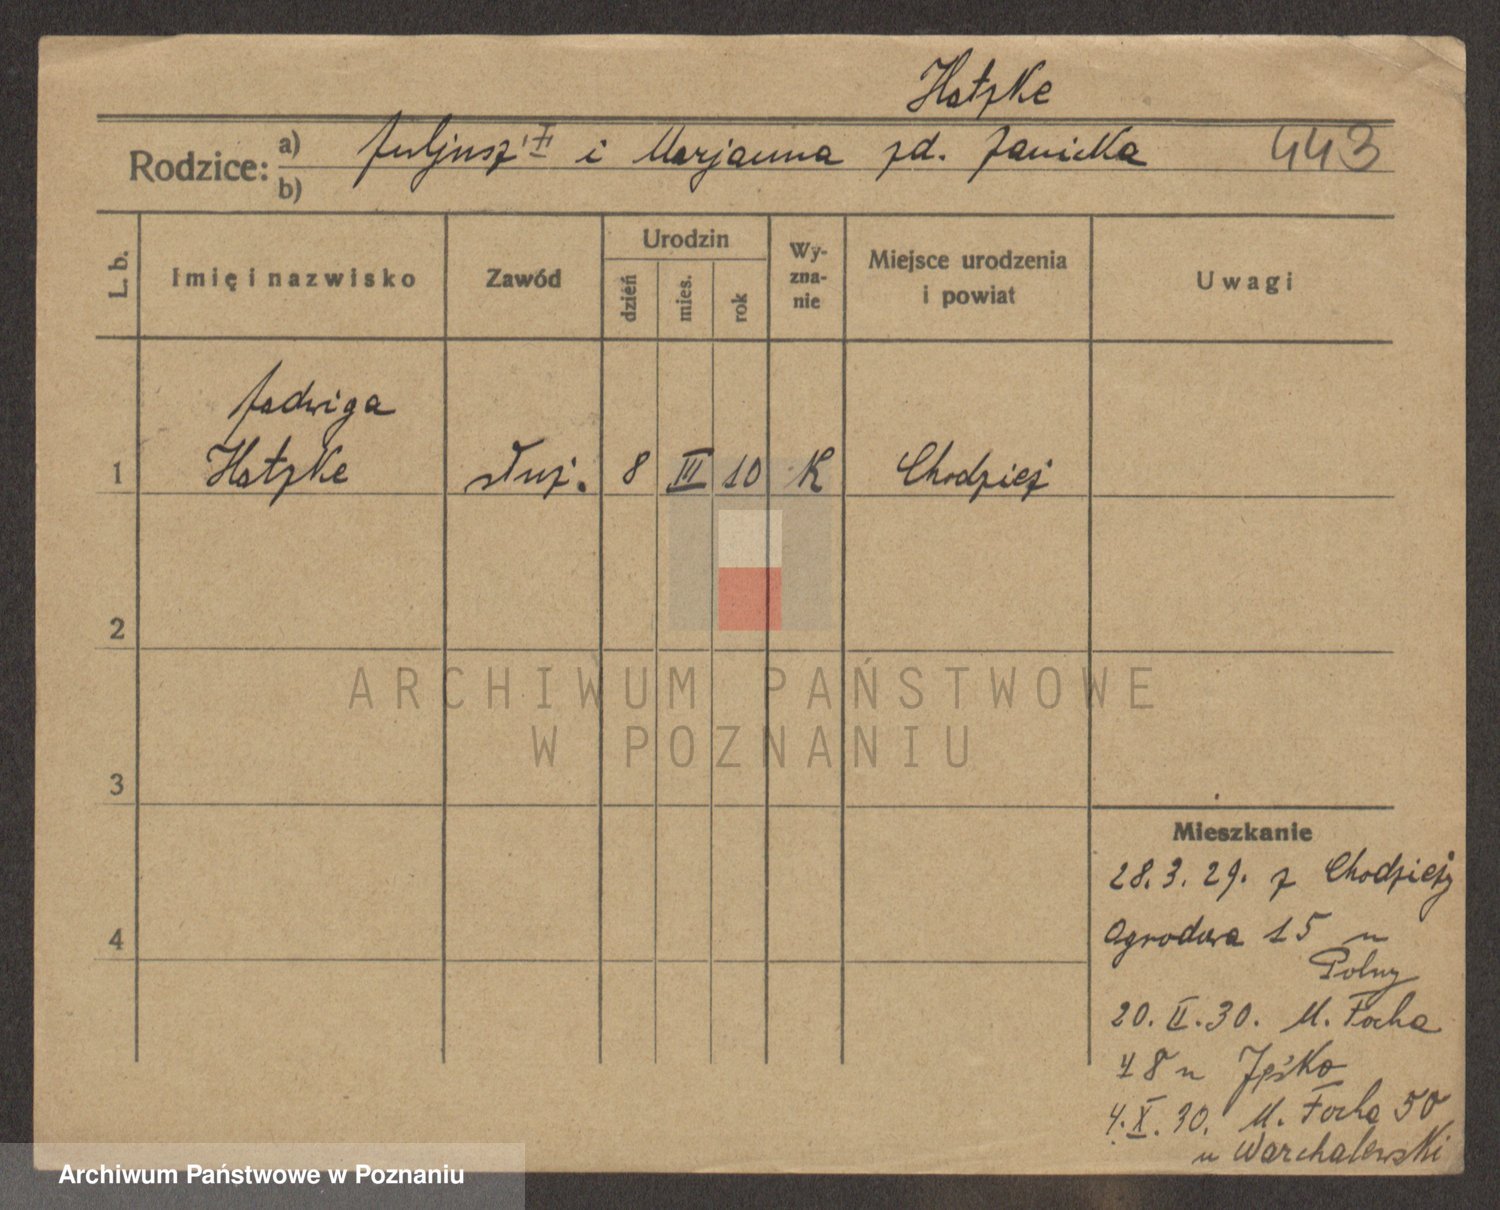 Hatzke
Rodzice: a) Juljusz i Marjanna zd. Janicka 443
b)
L. b. Imię i nazwisko Zawód Urodzin dzień mies. rok Wyznanie Miejsce urodzenia i powiat Uwagi
Jadwiga
1 Hatzke służ. 8 III 10 K Chodzież
2
3
4
Mieszkanie
28.3.29. z Chodzieży
Ogrodowa 15 u
Polny
20. II. 30. M. Focha
48 u
4. X. 30. M. Focha 50
u Warchalewski
ARCHIWUM PAŃSTWOWE
W POZNANIU
Archiwum Państwowe w Poznaniu